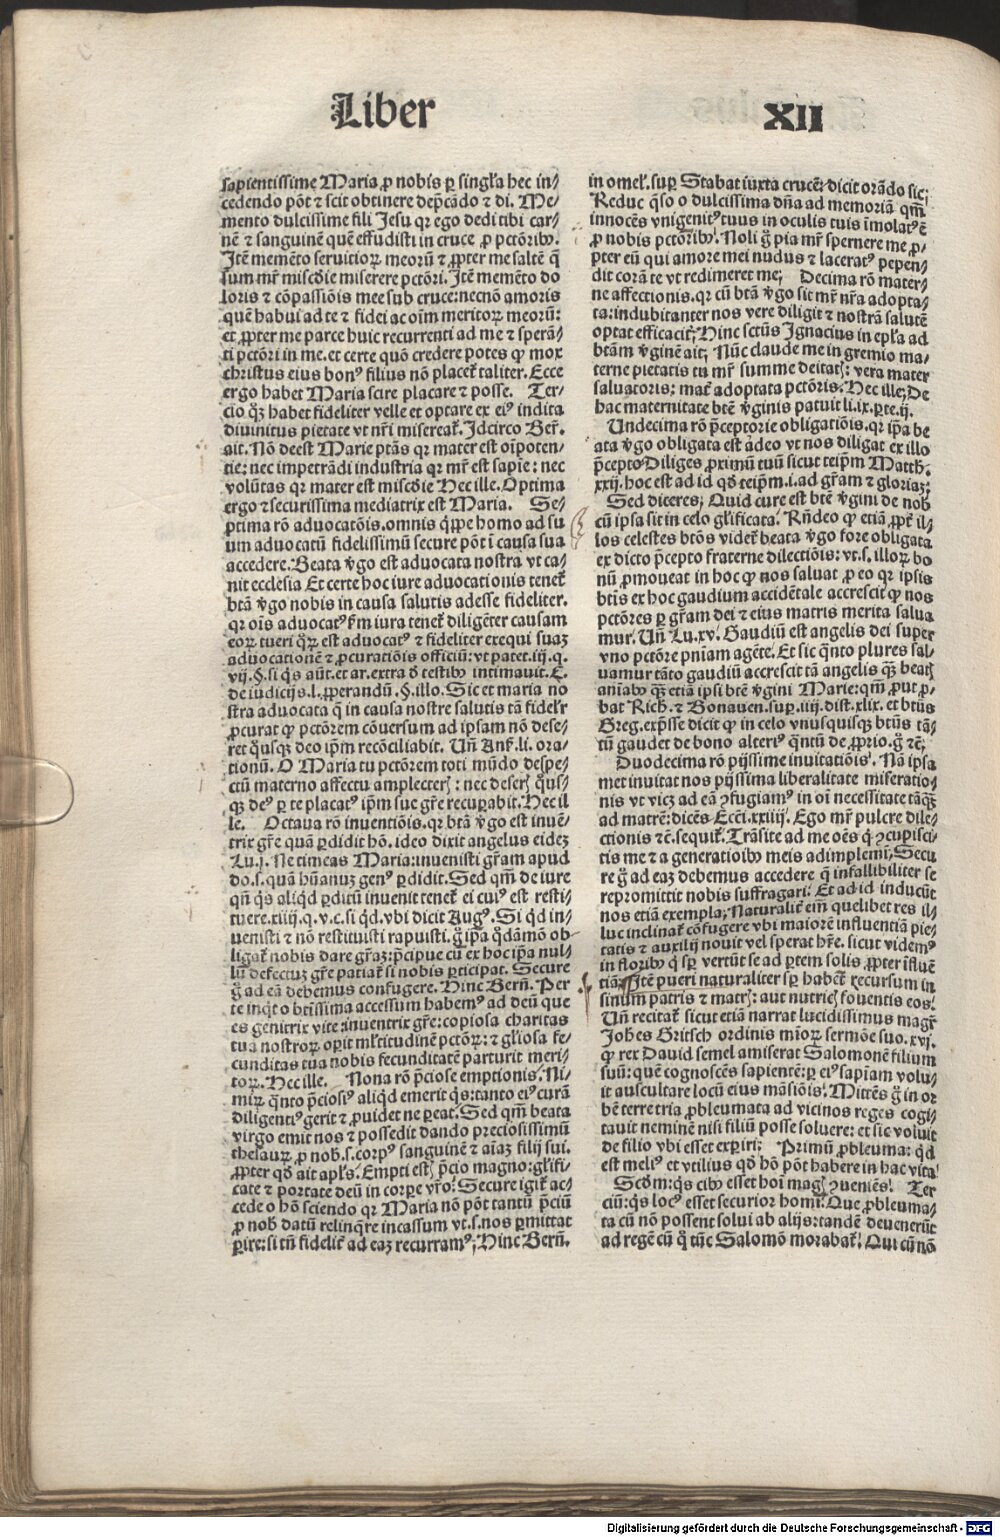 Liber XII
sapientissime Maria ꝓ nobis ꝑ singl'a hec in⸗
cedendo pōt ⁊ scit obtinere dep̄cādo ⁊ di. Me⸗
mento dulcissime fili Jesu qꝛ ego dedi tibi car⸗
nē ⁊ sanguinē quē effudisti in cruce ꝓ pctōribꝰ.
Itē memēto seruitioꝝ meoꝝ ⁊ ꝓpter me saltē q̄
sum mr̄ misc̄die miserere pctōri. Itē memēto do
loris ⁊ cōpassiōis mee sub cruce: necnō amoris
quē habui ad te ⁊ fidei ac oīm meritoꝝ meoꝝ:
et ꝓpter me parce huic recurrenti ad me ⁊ sperā⸗
ti pctōri in me. et certe quō credere potes ꝙ mox
christus eius bonꝰ filius nō placet̄ taliter. Ecce
ergo habet Maria scire placare ⁊ posse. Ter⸗
cio qꝫ habet fideliter velle et optare ex eiꝰ indita
diuinitus pietate vt nr̄i misereat̄. Idcirco Ber̄.
ait. Nō deest Marie ptās qꝛ mater est oīpoten⸗
tie: nec impetrādi industria qꝛ mr̄ est sapīe: nec
volūtas qꝛ mater est misc̄die Hec ille. Optima
ergo ⁊ securissima mediatrix est Maria. Se⸗
ptima rō aduocatōis. omnis q̄ppe homo ad su
um aduocatū fidelissimū secure pōt ī causa sua
accedere. Beata v̄go est aduocata nostra vt ca⸗
nit ecclesia Et certe hoc iure aduocationis tenet̄
btā v̄go nobis in causa salutis adesse fideliter.
qꝛ oīs aduocatꝰ ẜm iura tenet̄ diligēter causam
eoꝝ tueri q̄ꝝ est aduocatꝰ ⁊ fideliter exequi suaꝫ
aduocationē ⁊ ꝓcuratiōis officiū: vt patet. iij. q.
vij. §. si q̄s aūt. et ar. extra đ testibꝰ intimauit. C.
de iudicijs. l. ꝓperandū. §. illo. Sic et maria no
stra aduocata q̄ in causa nostre salutis tā fidel'r
ꝓcurat ꝙ pctōrem cōuersum ad ipsam nō dese⸗
ret q̄usqꝫ deo ip̄m recōciliabit. Un̄ Ans̄. li. ora⸗
tionū. O Maria tu pctōrem toti mūdo despe⸗
ctū materno affectu amplecterīs: nec deserīs q̄us⸗
qꝫ deꝰ ꝑ te placatꝰ ip̄m sue gr̄e recuꝑabit. Hec il
le. Octaua rō inuentiōis. qꝛ btā v̄go est inuē⸗
trix gr̄e quā ꝑdidit hō. ideo dixit angelus eideꝫ
Lu. j. Ne timeas Maria: inuenisti gr̄am apud
do. s. quā hūanuꝫ genꝰ ꝑdidit. Sed qm̄ de iure
qn̄ q̄s aliqd ꝑditū inuenit tenet̄ ei cuiꝰ est resti⸗
tuere. xiiij. q. v. c. si qd. vbi dicit Augꝰ. Si qd in⸗
uenisti ⁊ nō restituisti rapuisti. g̊ ip̄a q̄dāmō ob⸗
ligat̄ nobis dare gr̄aꝫ: p̄cipue cū ex hoc ip̄a nul⸗
lū defectuꝫ gr̄e patiat̄ si nobis ꝑticipat. Secure
g̊ ad eā debemus confugere. Hinc Bern̄. Per
te inqt o btissima accessum habemꝰ ad deū que
es genitrix vite: inuentrix gr̄e: copiosa charitas
tua nostroꝝ opit ml'titudinē pctōꝝ: ⁊ gl'iosa fe⸗
cunditas tua nobis fecunditatē parturit meri⸗
toꝝ. Hec ille. Nona rō p̄ciose emptionis. Ni⸗
miꝝ q̄nto p̄ciosiꝰ aliqd emerit q̄s: tanto eiꝰ curā
diligentiꝰ gerit ⁊ ꝓuidet ne ꝑeat. Sed qm̄ beata
virgo emit nos ⁊ possedit dando preciosissimū
thesauꝝ ꝓ nob̄. s. corpꝰ sanguinē ⁊ aīaꝫ filij sui.
ꝓpter qd̄ ait apl's. Empti estis p̄cio magno: gl'ifi⸗
cate ⁊ portate deū in corꝑe vr̄o. Secure igit̄ ac⸗
cede o hō sciendo qꝛ Maria nō pōt tantū p̄ciū
ꝓ nob̄ datū relinq̄re incassum vt. s. nos ꝑmittat
ꝑire: si tū fidelit̄ ad eaꝫ recurramꝰ. Hinc Bern̄.
in omel'. suꝑ Stabat iuxta crucē: dicit orādo sic:
Reduc q̄so o dulcissima dn̄a ad memoriā qm̄
innocēs vnigenitꝰ tuus in oculis tuis īmolatꝰ ē
ꝓ nobis pctōribꝰ. Noli g̊ pia mr̄ spernere me ꝓ⸗
pter eū qui amore mei nudus ⁊ laceratꝰ pepen⸗
dit corā te vt redimeret me. Decima rō mater⸗
ne affectionis. qꝛ cū btā v̄go sit mr̄ nr̄a adopta⸗
ta: indubitanter nos vere diligit ⁊ nostrā salutē
optat efficacit̄. Hinc sctūs Ignacius in epl'a ad
btām v̄ginē ait. Nūc claude me in gremio ma⸗
terne pietatis tu mr̄ summe deitatis: vera mater
saluatoris: mat̄ adoptata pctōris. Hec ille. De
hac maternitate btē v̄ginis patuit li. ix. ꝑte. ij.
Undecima rō p̄ceptorie obligatiōis. qꝛ ip̄a be
ata v̄go obligata est ādeo vt nos diligat ex illo
p̄cepto Diliges ꝓximū tuū sicut teip̄m Matth̄.
xxij. hoc est ad id qd̄ teip̄m. i. ad gr̄am ⁊ gloriaꝫ.
Sed diceres. Quid cure est btē v̄gini de nob̄
cū ipsa sit in celo gl'ificata. Rn̄deo ꝙ etiā ꝓpt̄ il⸗
los celestes btōs videt̄ beata v̄go fore obligata
ex dicto p̄cepto fraterne dilectiōis: vt. s. illoꝝ bo
nū ꝓmoueat in hoc ꝙ nos saluat ꝓ eo qꝛ ipsis
btīs ex hoc gaudium accidētale accrescit ꝙ nos
pctōres ꝑ gr̄am dei ⁊ eius matris merita salua
mur. Un̄ Lu. xv. Gaudiū est angelis dei super
vno pctōre pn̄iam agēte. Et sic q̄nto plures sal⸗
uamur tāto gaudiū accrescit tā angelis qꝫ beatis
aīabꝰ qꝫ etiā ipsi btē v̄gini Marie: qm̄ ꝓut ꝓ⸗
bat Rich̄. ⁊ Bonauen. suꝑ. iiij. dist. xlix. et btūs
Greg. exp̄sse dicit ꝙ in celo vnusquisqꝫ btūs tā⸗
tū gaudet de bono alteriꝰ q̄ntū de ꝓprio. g̊ ⁊c̄.
Duodecima rō pijssime inuitatiōis. Nā ipsa
met inuitat nos pijssima liberalitate miseratio⸗
nis vt vicꝫ ad eā ꝯfugiamꝰ in oī necessitate tāqꝫ
ad matrē: dicēs Ecc̄i. xxiiij. Ego mr̄ pulcre dile⸗
ctionis ⁊c̄. sequit̄. Trāsite ad me oēs q̄ ꝯcupisci⸗
tis me ⁊ a generatiōibꝰ meis adimplemī. Secu
re g̊ ad eaꝫ debemus accedere q̄ infallibiliter se
repromittit nobis suffragari. Et ad id inducūt
nos etiā exempla. Naturalit̄ eīm quelibet res il⸗
luc inclinat̄ cōfugere vbi maiorē influentiā pie⸗
tatis ⁊ auxilij nouit vel sperat hr̄e. sicut videmꝰ
in floribꝰ q̄ sꝑ vertūt se ad ꝑtem solis ꝓpter īfluē
tiā. Itē pueri naturaliter sꝑ habēt recursum in
sinum patris ⁊ matris: aut nutricis fouentis eos.
Un̄ recitat̄ sicut etiā narrat lucidissimus magr̄
Joh̄es Gritsch ordinis mīoꝝ sermōe suo. xvj.
ꝙ rex Dauid semel amiserat Salomonē filium
suū: quē cognoscēs sapientē: ꝑ eiꝰ sapīam volu⸗
it auscultare locū eius māsiōis. Mittēs g̊ in or
bē terre tria ꝓbleumata ad vicinos reges cogi⸗
tauit neminē nisi filiū posse soluere: et sic voluit
de filio vbi esset exꝑiri: Primū ꝓbleuma: qd
est meliꝰ et vtilius qd̄ hō pōt habere in hac vita
Scd̄m: q̄s cibꝰ esset hoī magis ꝯueniēs. Ter
ciū: q̄s locꝰ esset securior homī. Que ꝓbleuma⸗
ta cū nō possent solui ab alijs: tandē deuenerūt
ad regē cū q̊ tūc Salomō morabat̄. Qui cū nō
Digitalisierung gefördert durch die Deutsche Forschungsgemeinschaft - DFG